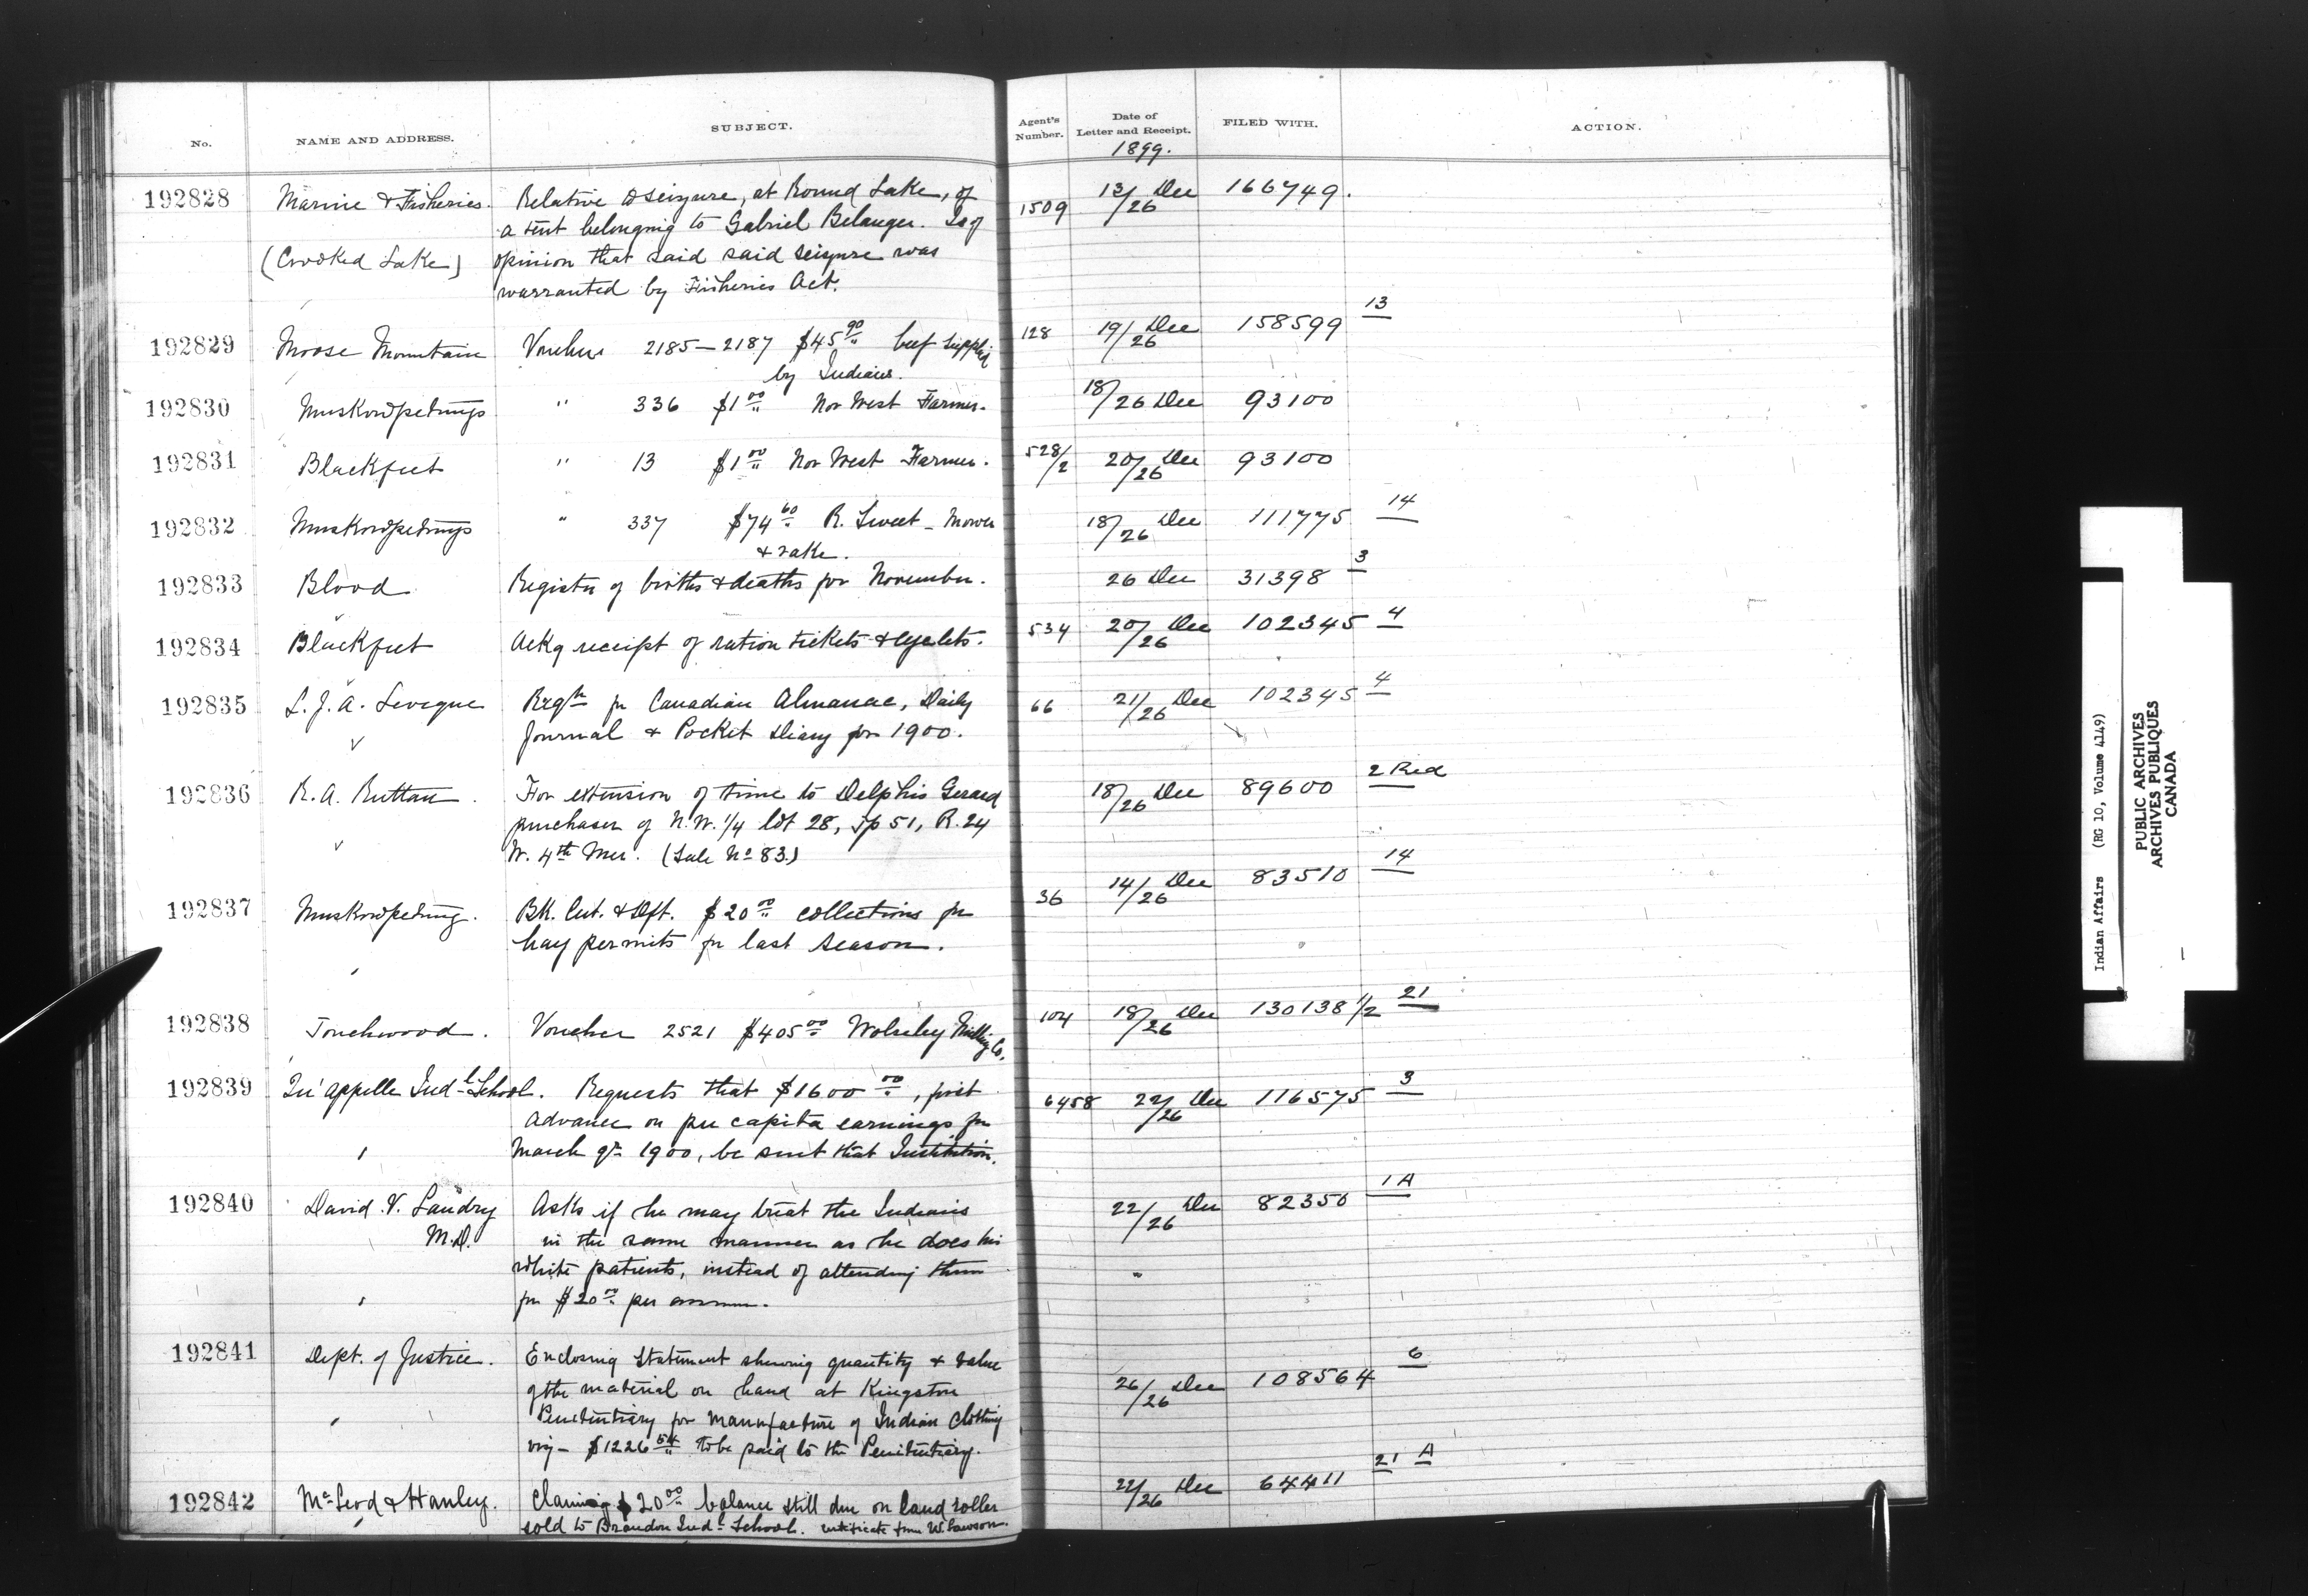 No. NAME AND ADDRESS. SUBJECT. Agent's Number. Date of Letter and Receipt. FILED WITH. ACTION.
1899.
192828 Marine & Fisheries. Relative to seizure, at Round Lake, of 1509 13/26 Dec 166749.
a tent belonging to Gabriel Belanger. Is of
(Crooked Lake) opinion that said said seizure was
warranted by Fisheries Act.
192829 Moose Mountain Voucher 2185-2187 $45 90 beef supplied 128 19/26 Dec 158599 13
by Indians.
192830 Muskowpetungs " 336 $1 00 Nor West Farmer. 18/26 Dec 93100
192831 Blackfeet " 13 $1 00 Nor West Farmer. 528/2 20/26 Dec 93100
192832 Muskowpetungs " 337 $74 60 R. Sweet - Mower 18/26 Dec 111775 14
& rake.
192833 Blood Register of births & deaths for November. 26 Dec 31398 3
192834 Blackfeet Ackg receipt of ration tickets & eyelets. 534 20/26 Dec 102345 4
192835 L. J. A. Leveque Reqn for Canadian Almanac, Daily 66 21/26 Dec 102345 4
Journal & Pocket Diary for 1900.
192836 R. A. Ruttan For extension of time to Delphis Gerard 18/26 Dec 89600 2 Red
purchaser of N.W. 1/4 lot 28, Tp 51, R. 24
W. 4th Mer. (Sale No 83.)
192837 Muskowpetung. Bk. Cert. & Dft. $20 00 collections for 36 14/26 Dec 83510 14
hay permits for last season.
192838 Touchwood. Voucher 2521 $405 00 Wolseley Milling Co. 104 18/26 Dec 130138 1/2 21
192839 Qu'appelle Indl School. Requests that $1600 00, first 6458 22/26 Dec 116575 3
advance on per capita earnings for
March qr 1900, be sent that Institution.
192840 David V. Landry Asks if he may treat the Indians 22/26 Dec 82350 1 A
M.D. in the same manner as he does his
white patients, instead of attending them
for $20 00 per annum.
192841 Dept. of Justice. Enclosing statement shewing quantity & value 26/26 Dec 108564 6
of the material on hand at Kingston
Penitentiary for manufacture of Indian clothing
viz - $1226 54 to be paid to the Penitentiary.
192842 McLeod & Hanley. Claiming $20 00 balance still due on land roller 22/26 Dec 64411 21 A
sold to Brandon Indl School. certificate from W. Lawson.
Indian Affairs (RG 10, Volume 4149)
PUBLIC ARCHIVES
ARCHIVES PUBLIQUES
CANADA